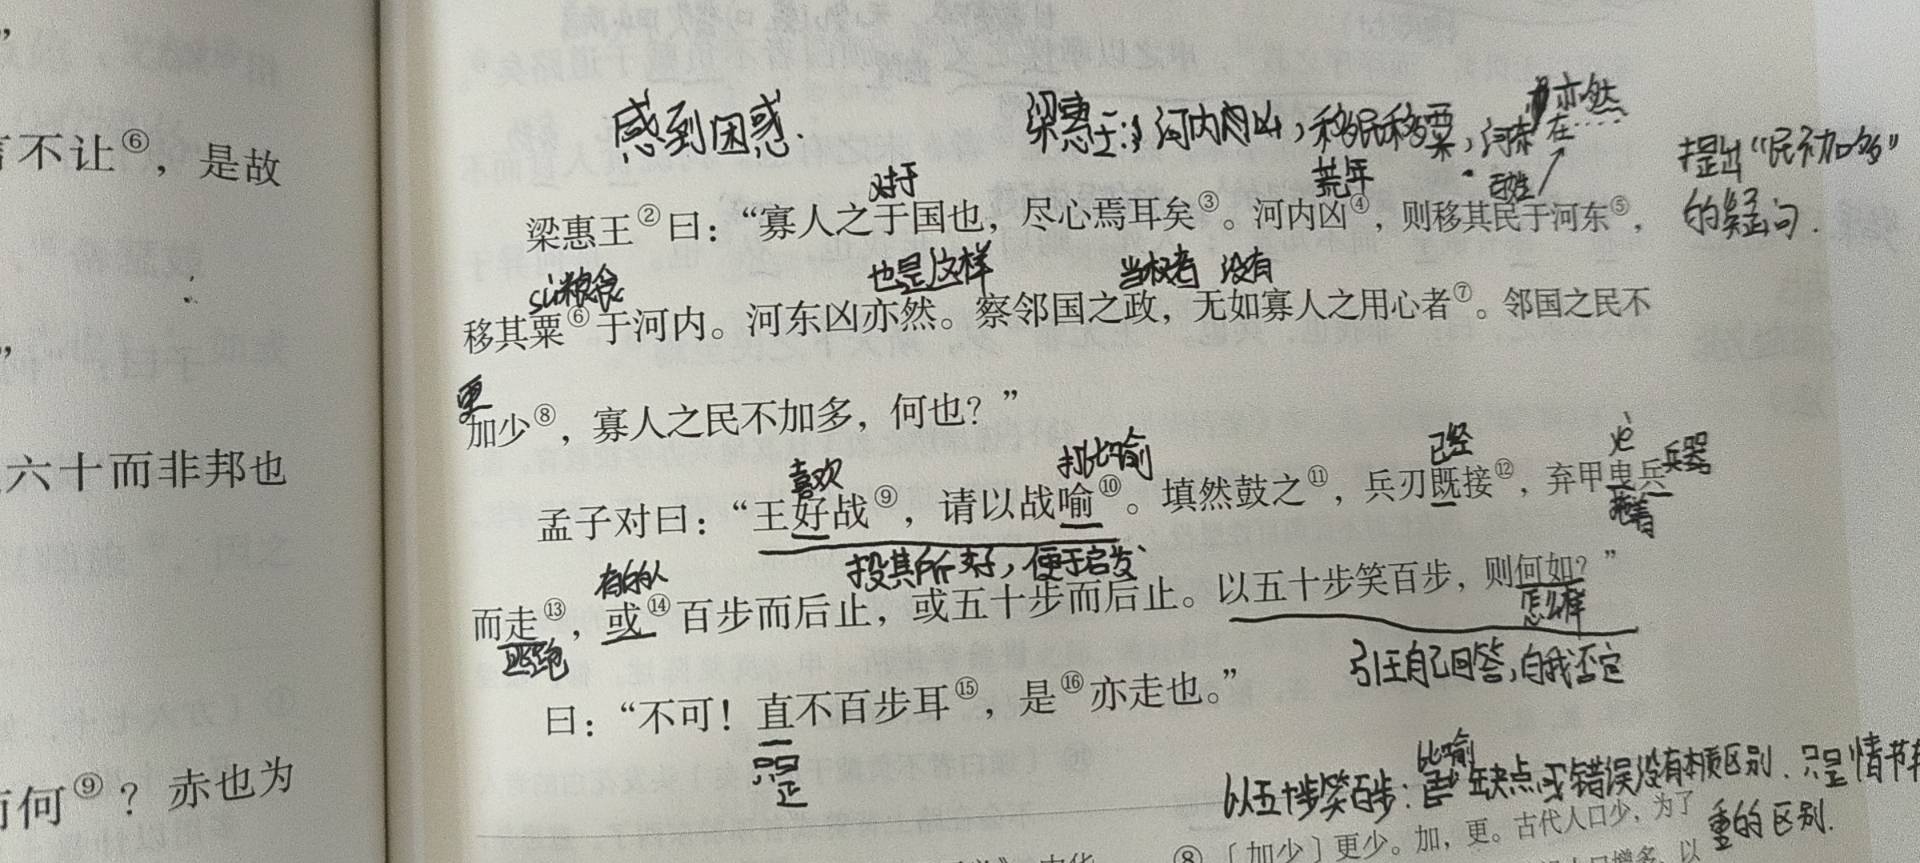 言不让⑥，是故
六十而非邦也
何⑨？赤也为
感到困惑.
梁惠王:河内凶,移民移粟,河东
亦然
提出“民不加多”
的疑问.
对于
荒年
百姓
在
梁惠王②曰：“寡人之于国也，尽心焉耳矣③。河内凶④，则移其民于河东⑤，
sù粮食
也是这样
当权者 没有
移其粟⑥于河内。河东凶亦然。察邻国之政，无如寡人之用心者⑦。邻国之民不
更
加少⑧，寡人之民不加多，何也？”
喜欢
打比喻
已经
yè
兵器
孟子对曰：“王好战⑨，请以战喻⑩。填然鼓之⑪，兵刃既接⑫，弃甲曳兵
拖着
投其所好,便于启发
有的人
而走⑬，或⑭百步而后止，或五十步而后止。以五十步笑百步，则何如？”
逃跑
怎么样
引王自己回答,自我否定
曰：“不可！直不百步耳⑮，是⑯亦走也。”
只是
比喻
以五十步笑百步:缺点或错误没有本质区别.只是情节轻
重的区别.
⑧〔加少〕更少。加，更。古代人口少，为了
人口增多，以